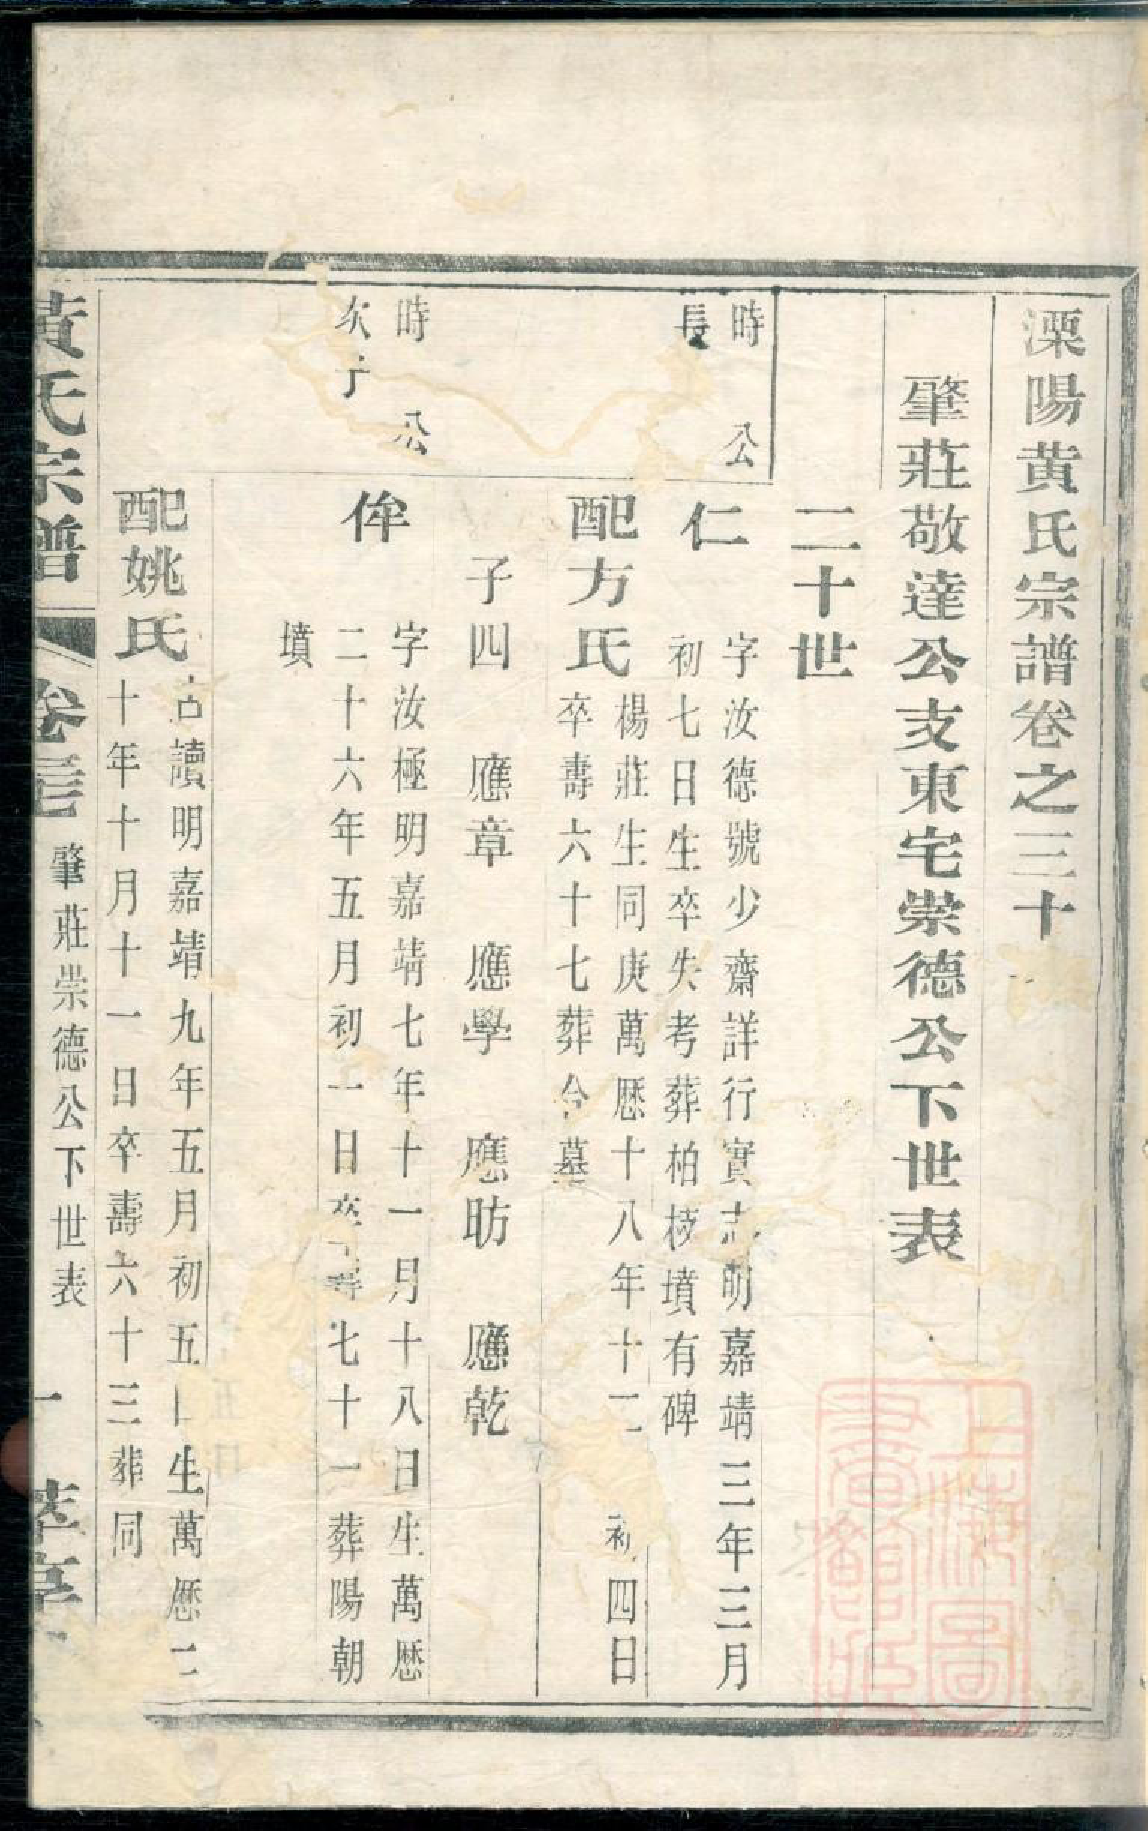 溧陽黄氏宗譜卷之三十
肇莊敬達公支東宅崇德公下世表
二十世
時公
長
仁
字汝德號少齋詳行實志明嘉靖三年三月
初七日生卒失考葬柏枝墳有碑
配方氏
楊莊生同庚萬厯十八年十二初四日
卒壽六十七葬合墓
子四 應章 應學 應昉 應乾
時公
次子
侔
字汝極明嘉靖七年十一月十八日生萬厯
二十六年五月初一日卒壽七十一葬陽朝
墳
配姚氏
讀明嘉靖九年五月初五日生萬厯二
十年十月十一日卒壽六十三葬同
黃氏宗譜
卷三十
肇莊崇德公下世表
一
上海圖書館藏